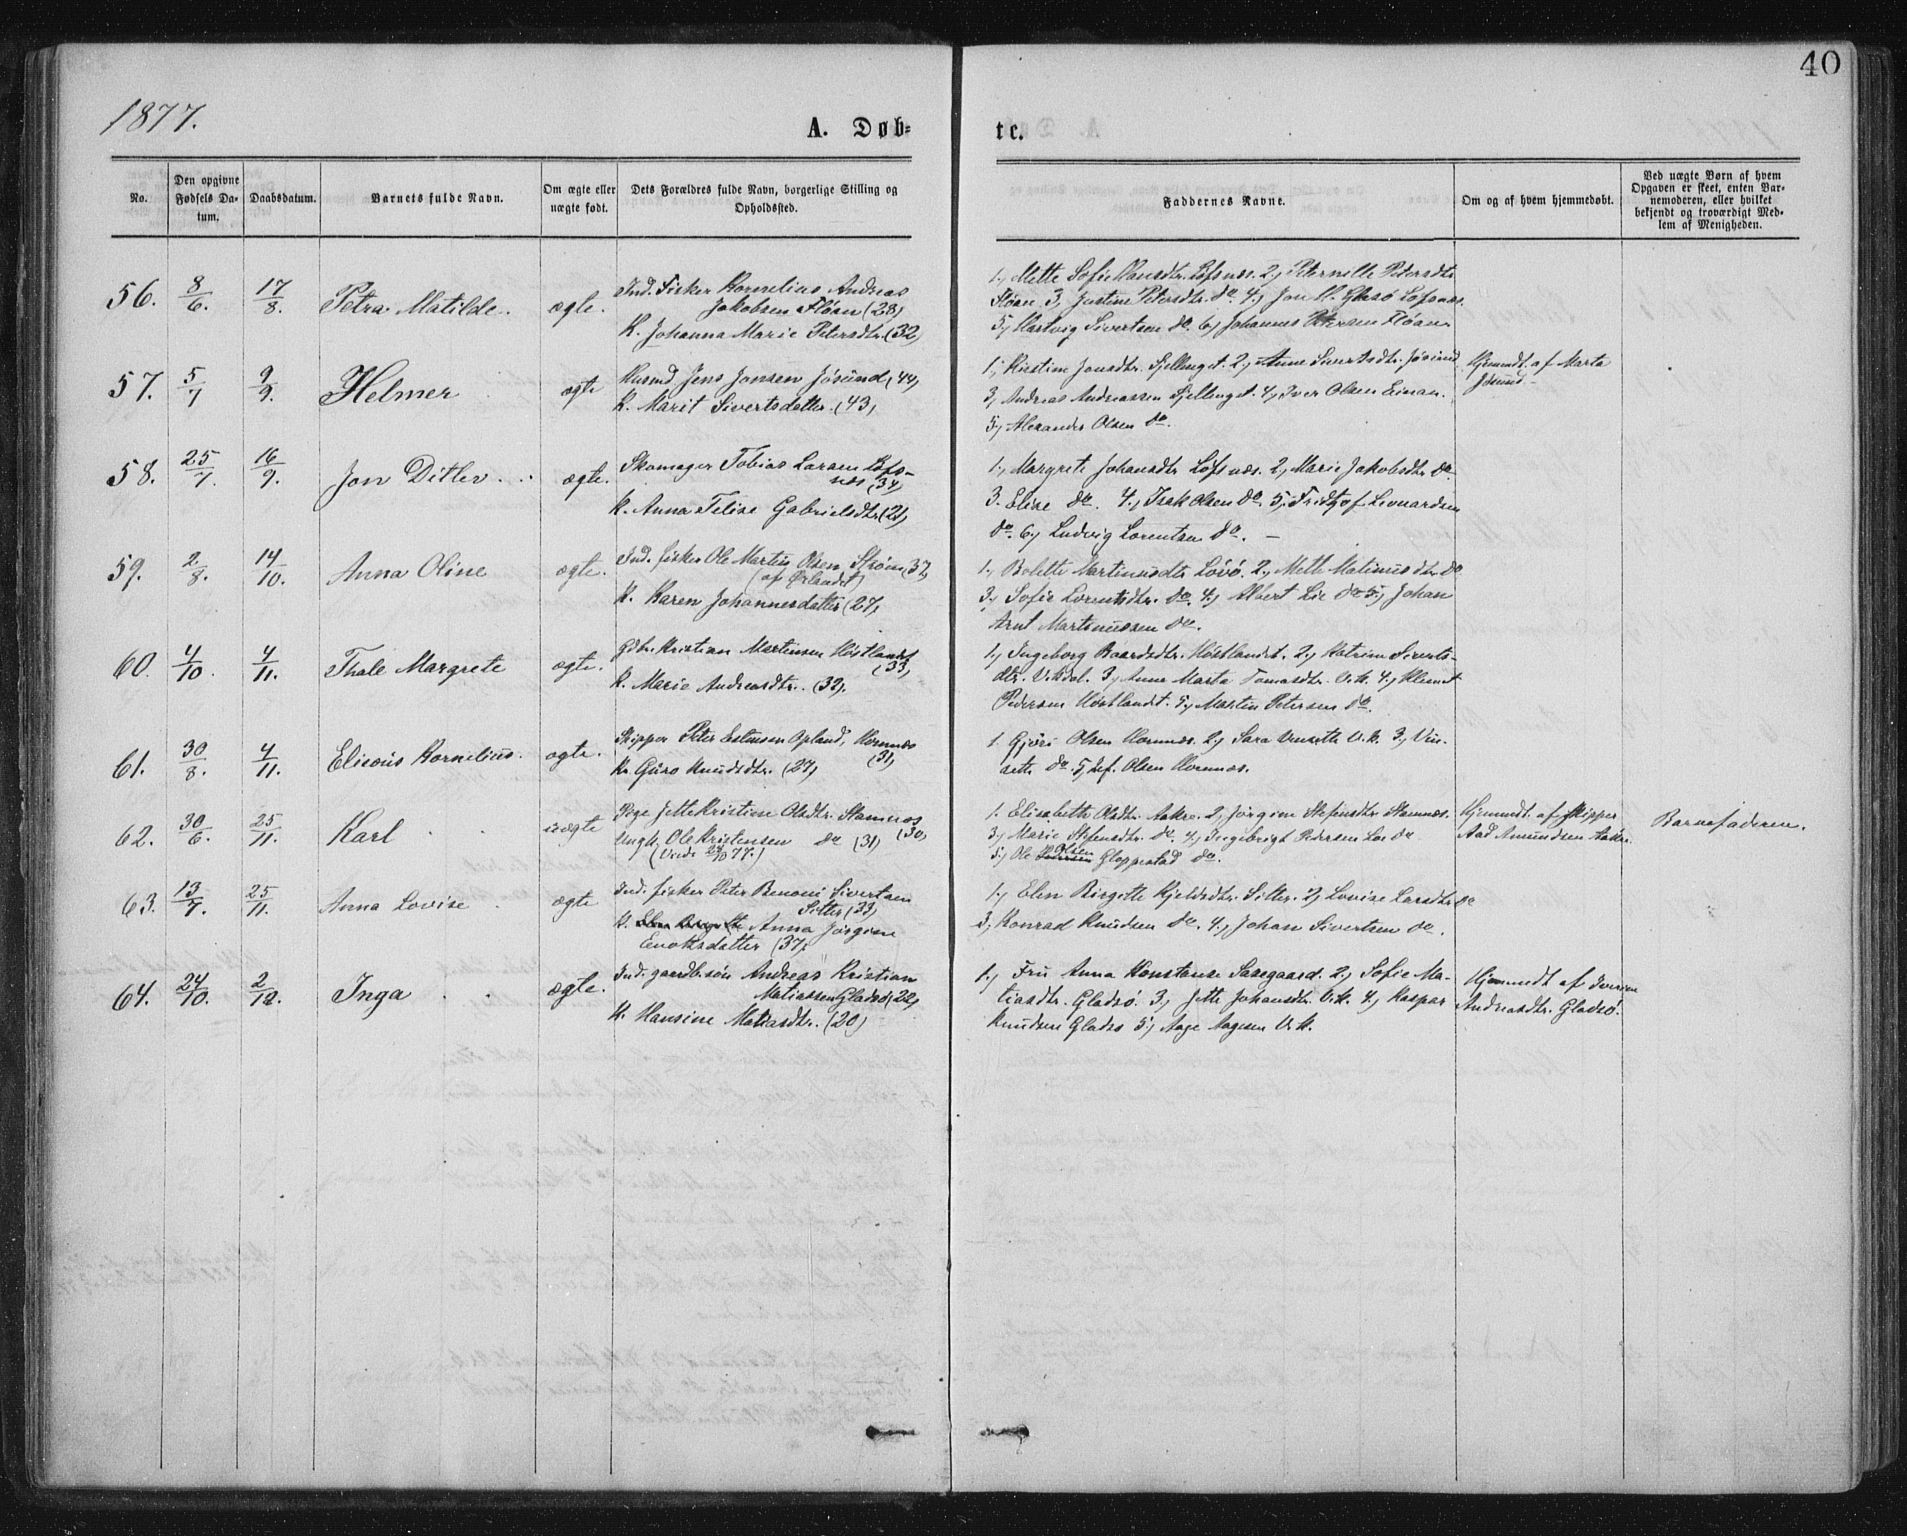 40
1877.
A. Døb=
te.
No.
Den opgivne Fødsels Da-tum.
Daabsdatum.
Barnets fulde Navn.
Om ægte eller nægte født.
Dets Forældres fulde Navn, borgerlige Stilling og Opholdssted.
Faddernes Navne.
Om og af hvem hjemmedøbt.
Ved uægte Børn af hvem Opgaven er skeet, enten Bar-nemoderen, eller hvilket bekjendt og troværdigt Med-lem af Menigheden.
56. 8/6. 17/8. Petra Matilde. ægte.
Ind. Fisker Kornelius Andreas
Jakobsen Fløan (28)
K. Johanna Marie Petersdtr. (32)
1, Mette Sofie Hansdtr. Løfsnæs. 2, Peternille Petersdtr
Fløan 3, Justine Petersdtr. do. 4, Jon Løfsnæs.
5, Hartvig Sivertsen do. 6, Johannes Petersen Fløan
57. 5/7 9/9. Helmer ægte
Husmd. Jens Jonsen Jøsund (44)
K. Marit Sivertsdatter. (43)
1, Kirstine Jonsdtr. Fjellenget. 2, Anne Sivertsdtr. Jøsund
3, Andreas Andreassen Fjellenget. 4, Iver Olsen Einan.
5, Alexander Olsen do.
Hjemmdt. af Marta
Jøsund.
58. 25/7. 16/9. Jon Ditlev. ægte.
Skomager Tobias Larsen Løfs-
næs (34)
K. Anna Felise Gabrielsdtr. (21)
1, Margrete Johansdtr. Løfsnæs. 2, Marie Jakobsdtr. do
3. Elise do. 4, Isak Olsen do. 5, Fridtjof Leonardsen
do. 6, Ludvig Lorentsen do.
59. 2/8. 14/10. Anna Oline ægte.
Ind. fisker Ole Martin Olsen Strøm (37)
(af Ørlandet)
K. Karen Johannesdatter (27)
1, Bolette Martinusdtr. Løvø. 2, Mette Matinusdtr. do
3, Sofie Lorentsdtr. do. 4, Albert Lie do 5, Johan
Arnt Martinussen do.
60. 4/10. 4/11. Thale Margrete ægte.
Gbr. Kristian Mortensen Høstlandet
(33)
K. Marie Andreasdtr. (32).
1, Ingeborg Baardsdtr. Høstlandet. 2, Katrine Siverts-
dtr. Vikdal. 3, Anne Marta Tomasdtr. Vik. 4, Klemet
Pedersen Høstlandet. 5, Martin Petersen do.
61. 30/8. 4/11. Eliseus Kornelius. ægte.
Skipper Peter Estensen Opland, Hornnæs
(31)
K. Guro Knudsdtr. (27)
1. Gjøri Olsen Hornnæs. 2, Sara Vensette Vik. 3, Ven-
sette do. 5, Olsen Hornnæs.
62. 30/6. 25/11. Karl uægte
Pige Jette Kristine Olsdtr. Stamnes
(30)
Ungk. Ole Kristensen do (31)
(Viede 28/10 77.)
1. Elisabeth Olsdtr. Aakre. 2, Jørgine Stefensdtr. Stamnæs.
3, Marie Stefensdtr. do. 4, Ingebrigt Pedersen Loe do
5, Ole Olsen Gloppestad do.
Hjemmdt. af Skipper
Aad Amundsen Aakre.
Barnefaderen.
63. 13/7. 25/11. Anna Lovise ægte
Ind. fisker Peter Benoni Sivertsen
Sitter (33)
K. Anna Jørgine
Enoksdatter (37)
1, Elen Birgitte Kjeldsdtr. Sitter. 2, Lovise Larsdtr. do
3, Konrad Knudsen do. 4, Johan Sivertsen do.
64. 24/10. 2/12. Inga ægte.
Ind. gaardb.søn Andreas Kristian
Matiassen Gladsø (22)
K. Hansine Matiasdtr. (20)
1, Fru Anna Konstanse Saxegaard. 2, Sofie Ma-
tiasdtr. Gladsø. 3, Jette Johansdtr. Vik. 4, Kaspar
Knudsen Gladsø 5, Aage Aagesen Vik.
Hjemmdt af Iverine
Andreasdtr. Gladsø.